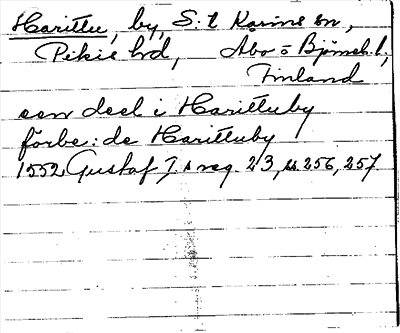 Harittu, by, S:t Karins sn,
Pikie hd, Åbo o Björneb. l.,
Finland
een deel i Harittuby
förbe: de Harittuby
1552 Gustaf I:s reg. 23, s. 256, 257